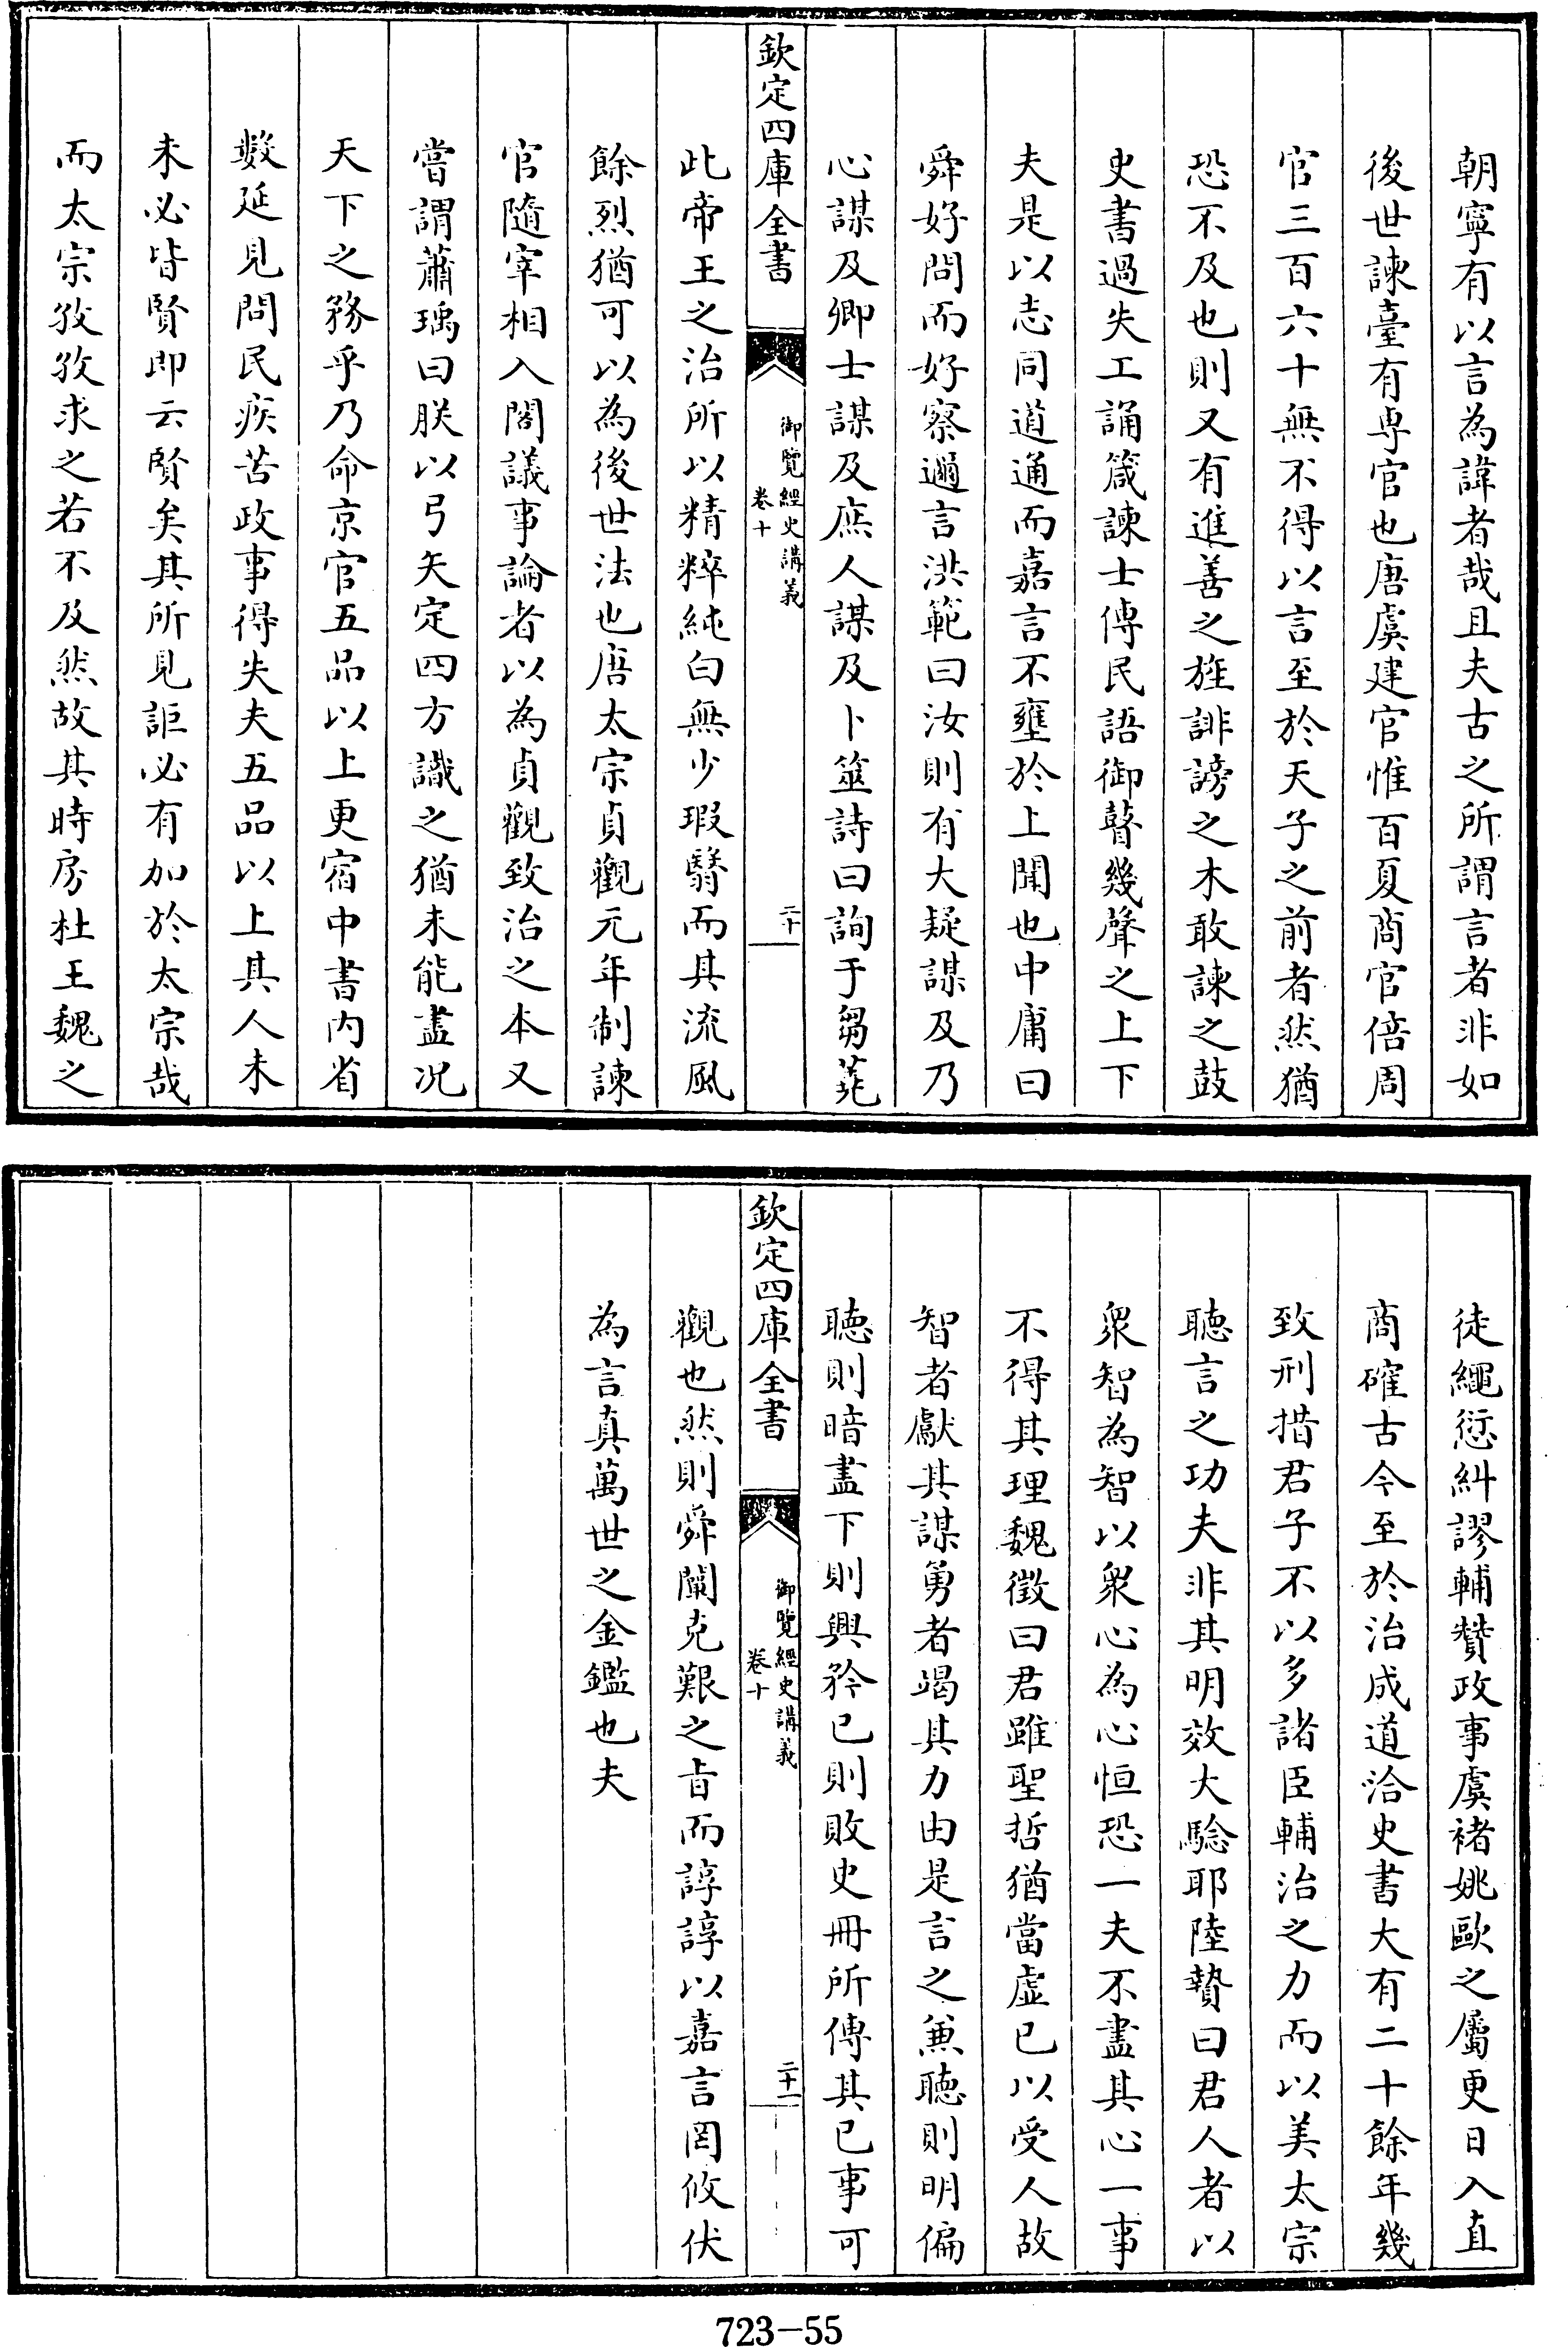 朝寧有以言為諱者哉且夫古之所謂言者非如
後世諫臺有專官也唐虞建官惟百夏商官倍周
官三百六十無不得以言至於天子之前者然猶
恐不及也則又有進善之旌誹謗之木敢諫之鼓
史書過失工誦箴諫士傳民語御瞽幾聲之上下
夫是以志同道通而嘉言不壅於上聞也中庸曰
舜好問而好察邇言洪範曰汝則有大疑謀及乃
心謀及卿士謀及庶人謀及卜筮詩曰詢于芻蕘
欽定四庫全書
御覽經史講義
卷十
二十
此帝王之治所以精粹純白無少瑕翳而其流風
餘烈猶可以為後世法也唐太宗貞觀元年制諫
官隨宰相入閤議事論者以為貞觀致治之本又
嘗謂蕭瑀曰朕以弓矢定四方識之猶未能盡况
天下之務乎乃命京官五品以上更宿中書内省
數延見問民疾苦政事得失夫五品以上其人未
未必皆賢即云賢矣其所見詎必有加於太宗哉
而太宗孜孜求之若不及然故其時房杜王魏之
徒繩愆糾謬輔贊政事虞褚姚歐之屬更日入直
商確古今至於治成道洽史書大有二十餘年幾
致刑措君子不以多諸臣輔治之力而以美太宗
聽言之功夫非其明效大驗耶陸贄曰君人者以
衆智為智以衆心為心恒恐一夫不盡其心一事
不得其理魏徵曰君雖聖哲猶當虛已以受人故
智者獻其謀勇者竭其力由是言之兼聽則明偏
聽則暗盡下則興矜已則敗史冊所傳其已事可
欽定四庫全書
御覽經史講義
卷十
二十一
觀也然則舜闡克艱之旨而諄諄以嘉言罔攸伏
為言真萬世之金鑑也夫
723-55